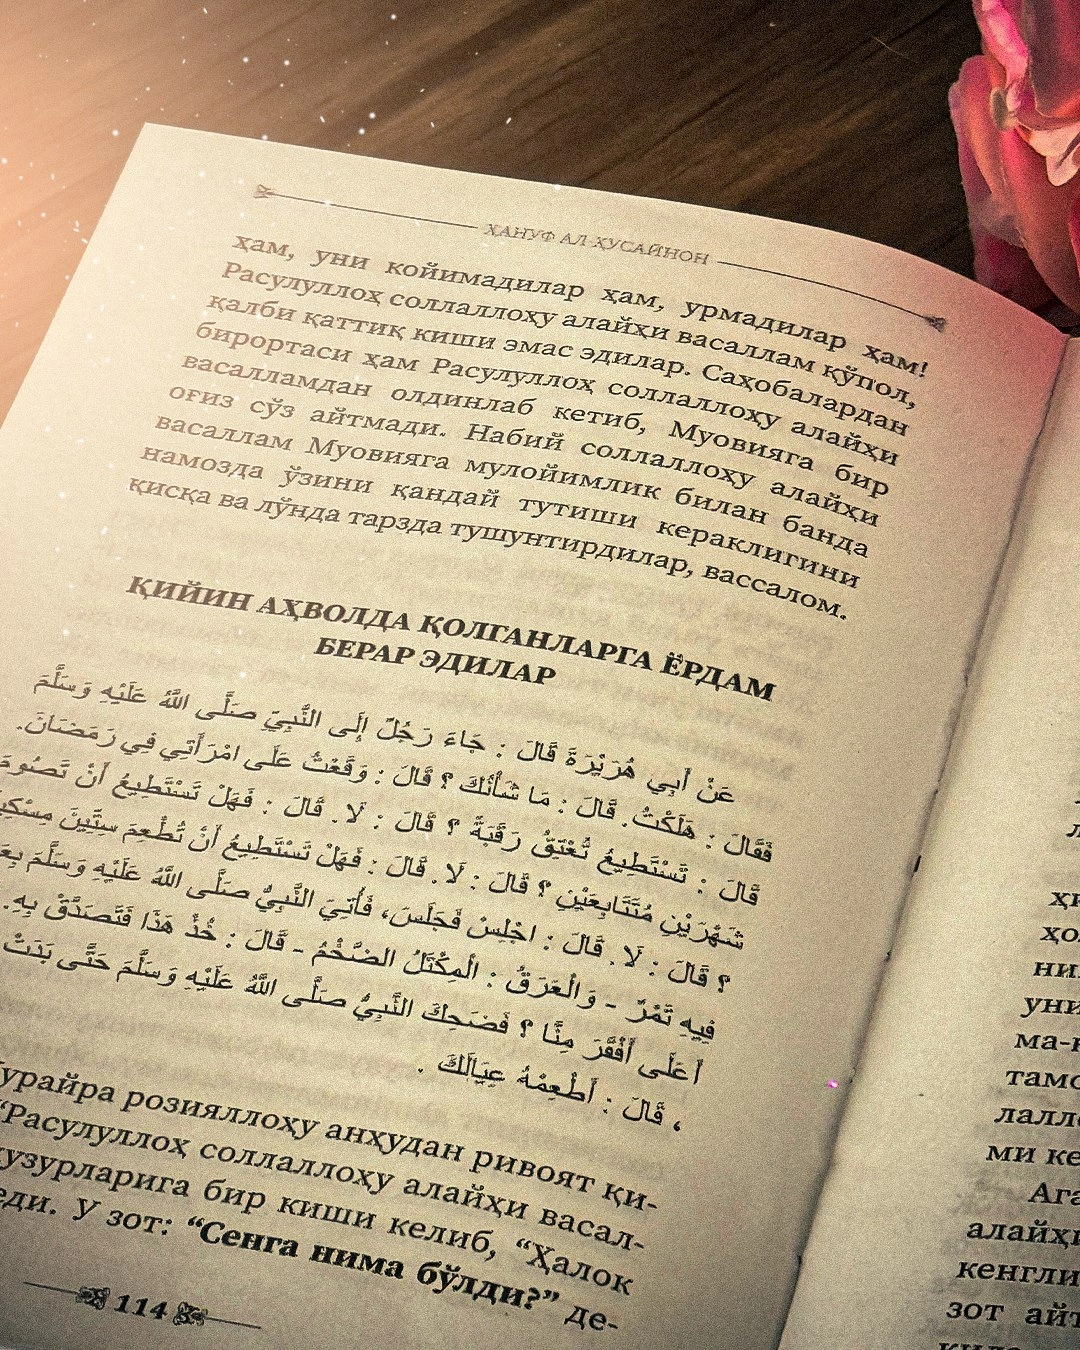 ҲАНУФ АЛ-ҲУСАЙНОН
ҳам, уни койимадилар ҳам, урмадилар ҳам!
Расулуллоҳ соллаллоҳу алайҳи васаллам қўпол,
қалби қаттиқ киши эмас эдилар. Саҳобалардан
бирортаси ҳам Расулуллоҳ соллаллоҳу алайҳи
васалламдан олдинлаб кетиб, Муовияга бир
оғиз сўз айтмади. Набий соллаллоҳу алайҳи
васаллам Муовияга мулойимлик билан банда
намозда ўзини қандай тутиши кераклигини
қисқа ва лўнда тарзда тушунтирдилар, вассалом.
ҚИЙИН АҲВОЛДА ҚОЛГАНЛАРГА ЁРДАМ
БЕРАР ЭДИЛАР
عَنْ أَبِي هُرَيْرَةَ قَالَ : جَاءَ رَجُلٌ إِلَى النَّبِيِّ صَلَّى اللهُ عَلَيْهِ وَسَلَّمَ
فَقَالَ : هَلَكْتُ. قَالَ : مَا شَأْنُكَ ؟ قَالَ : وَقَعْتُ عَلَى امْرَأَتِي فِي رَمَضَانَ.
قَالَ : تَسْتَطِيعُ تُعْتِقُ رَقَبَةً ؟ قَالَ : لَا . قَالَ : فَهَلْ تَسْتَطِيعُ أَنْ تَصُومَ
شَهْرَيْنِ مُتَتَابِعَيْنِ ؟ قَالَ : لَا . قَالَ : فَهَلْ تَسْتَطِيعُ أَنْ تُطْعِمَ سِتِّينَ
؟ قَالَ : لَا . قَالَ : اجْلِسْ فَجَلَسَ، فَأُتِيَ النَّبِيُّ صَلَّى اللهُ عَلَيْهِ وَسَلَّمَ
فِيهِ تَمْرٌ - وَالْعَرَقُ : الْمِكْتَلُ الضَّخْمُ - قَالَ : خُذْ هَذَا فَتَصَدَّقْ بِهِ.
أَعَلَى أَفْقَرَ مِنَّا ؟ فَضَحِكَ النَّبِيُّ صَلَّى اللهُ عَلَيْهِ وَسَلَّمَ حَتَّى بَدَتْ
، قَالَ : أَطْعِمْهُ عِيَالَكَ .
урайра розияллоҳу анҳудан ривоят қи-
“Расулуллоҳ соллаллоҳу алайҳи васал-
узурларига бир киши келиб, “Ҳалок
еди. У зот: “Сенга нима бўлди?” де-
114
ҳо
ни
уни
ма-
тамо
лалло
ми ке
Ага
алайҳи
кенгли
зот айт